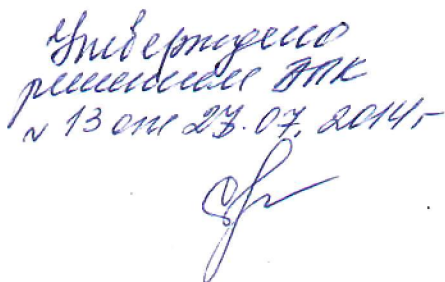 Утверждено
решением ЭПК
№ 13 от 23.07.2014г